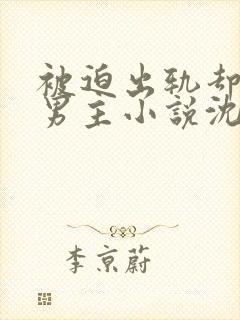 被迫出轨却
男主小说沈
李京蔚